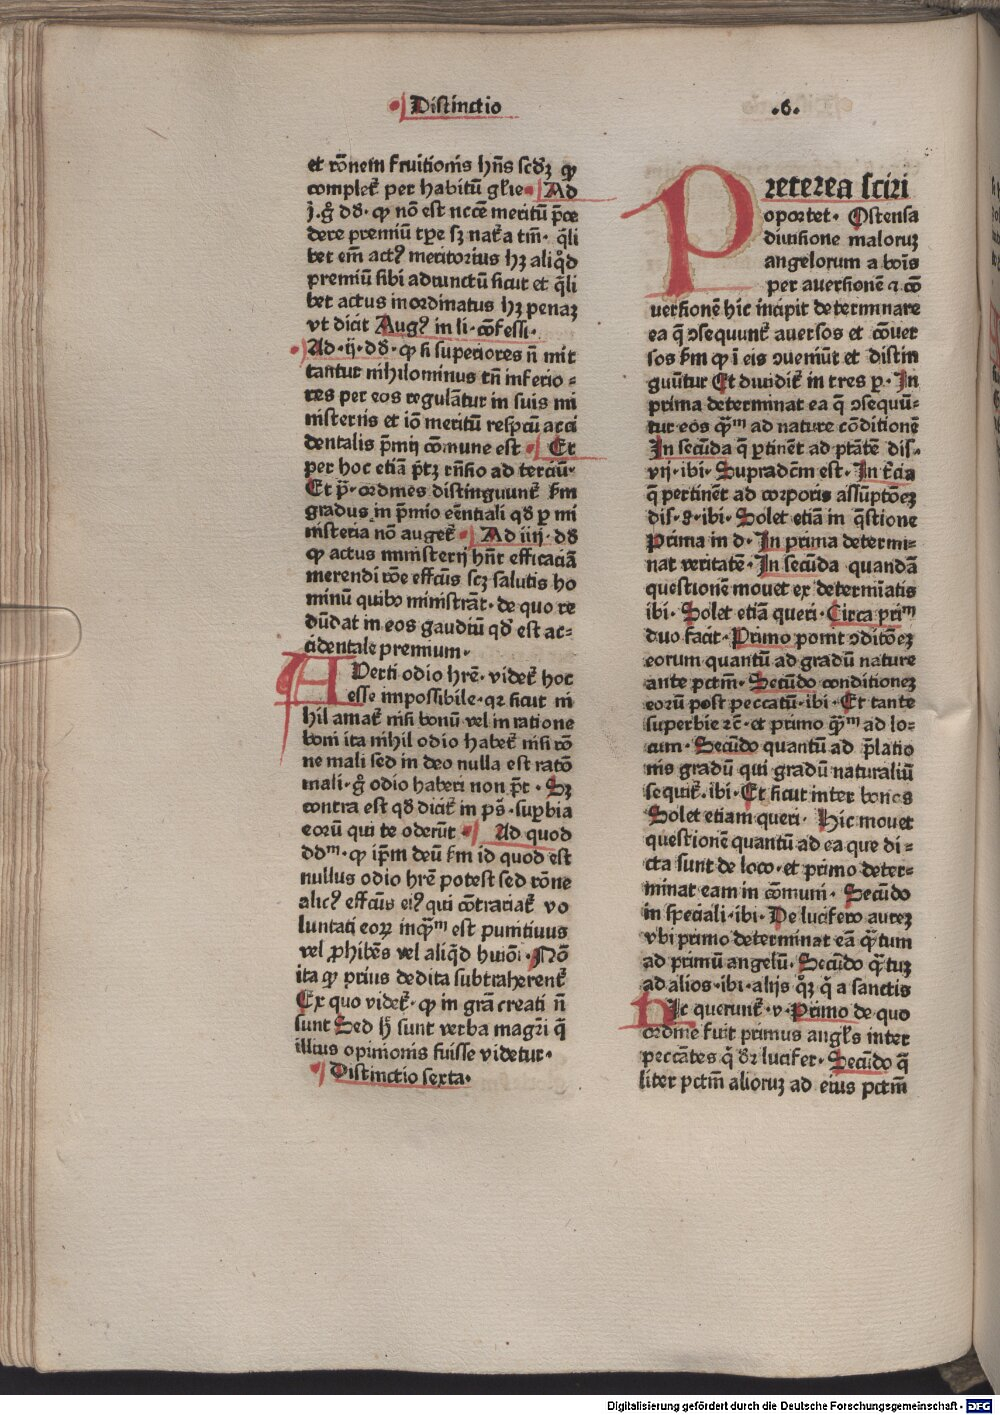 Distinctio
.6.
et rōnem fruitionis hn̄s scd'ꝫ ꝙ
complet᷑ per habitū gl'ie. Ad
j. gͦ dd'. ꝙ nō est necc̄e meritū p̄ce
dere premiū tp̄e sꝫ nat᷑a tm̄. q̄li
bet em̄ actꝰ meritorius hꝫ aliq̇d
premiū sibi adiunctū sicut et q̄li
bet actus inordinatus hꝫ penaꝫ
vt dicit Augꝰ in li. cōfessi.
Ad. ij. dd'. ꝙ si superiores n̄ mit
tantur nihilominus tn̄ inferio-
res per eos regulāt̄ur in suis mi
nisteriis et iō meritū resp̄cu acci
dentalis p̄mij cōmune est. Et
per hoc etiā p̄tꝫ rn̄sio ad terciū.
Et p̄. ordines distinguunt᷑ ẜm
gradus in p̄mio eēntiali qd' ꝑ mi
nisteria nō auget᷑. Ad iiij. dd'
ꝙ actus ministerij hn̄t efficaciā
merendi rōe effcūs scꝫ salutis ho
minū quibꝰ ministrāt. de quo re
dūdat in eos gaudiū qd' est ac-
cidentale premium.
APerti odio hr̄e. videt᷑ hoc
esse impossibile. qꝛ sicut ni
hil amat᷑ nisi bonū vel in ratione
boni ita nihil odio habet᷑ nisi rō
ne mali sed in deo nulla est ratō
mali. gͦ odio haberi non p̄t. Sꝫ
contra est qd' dicit᷑ in ps̄. suꝑbia
eorū qui te oderūt. Ad quod
dd̄ᵐ. ꝙ ip̄m deū ẜm id quod est
nullus odio hr̄e potest sed rōne
alicꝰ effcūs eiꝰ qui cōtrariat᷑ vo
luntati eoꝝ inq̄ᵐ est punitiuus
vel ꝓhibēs vel aliq̇d huiōi. Nō
ita ꝙ prius dedita subtraherent᷑
Ex quo videt᷑. ꝙ in grā creati n̄
sunt Sed hͥ sunt verba magr̄i q̄
illius opinionis fuisse videtur.
Distinctio sexta.
PReterea sciri
oportet. Ostensa
diuisione maloruꝫ
angelorum a boīs
per auersionē ⁊ cō
uersionē hic incipit determinare
ea q̄ ↄsequunt᷑ auersos et cōuer
sos ẜm ꝙ ī eis ↄueniūt et distin
guūtur Et diuidit᷑ in tres ꝑ. In
prima determinat ea q̄ ↄsequū-
tur eos q̄ᵐ ad nature cōditionē
In secūda q̄ ꝑtinēt ad ptātē dis-
vij. ibi. Supradc̄m est. In t᷑cia
q̄ pertinēt ad corporis assūptōeꝫ
dis. 8. ibi. Solet etiā in q̄stione
Prima in d. In prima determi-
nat veritatē. In secūda quandā
questionē mouet ex determīatis
ibi. Solet etiā queri. Circa priᵐ
duo facit. Primo ponit ↄditōeꝫ
eorum quantū ad gradū nature
ante pctm̄. Secūdo conditioneꝫ
eorū post peccatū. ibi. Et tante
superbie ⁊c̄. et primo q̄ᵐ ad lo-
cum. Secūdo quantū ad p̄latio
nis gradū qui gradū naturaliū
sequit᷑. ibi. Et sicut inter bonos
Solet etiam queri. Hic mouet
questionē quantū ad ea que di-
cta sunt de loco. et primo deter-
minat eam in cōmuni. Secūdo
in speciali. ibi. De lucifero auteꝫ
vbi primo determinat eā q̄tum
ad primū angelū. Secūdo q̄tuꝫ
ad alios. ibi. alijs q̇ꝫ q̇ a sanctis
HIc querunt᷑. v. Primo de quo
ordine fuit primus angl's inter
peccātes q̇ dꝛ lucifer. Secūdo q̄
liter pctm̄ alioruꝫ ad eius pctm̄
Digitalisierung gefördert durch die Deutsche Forschungsgemeinschaft - DFG